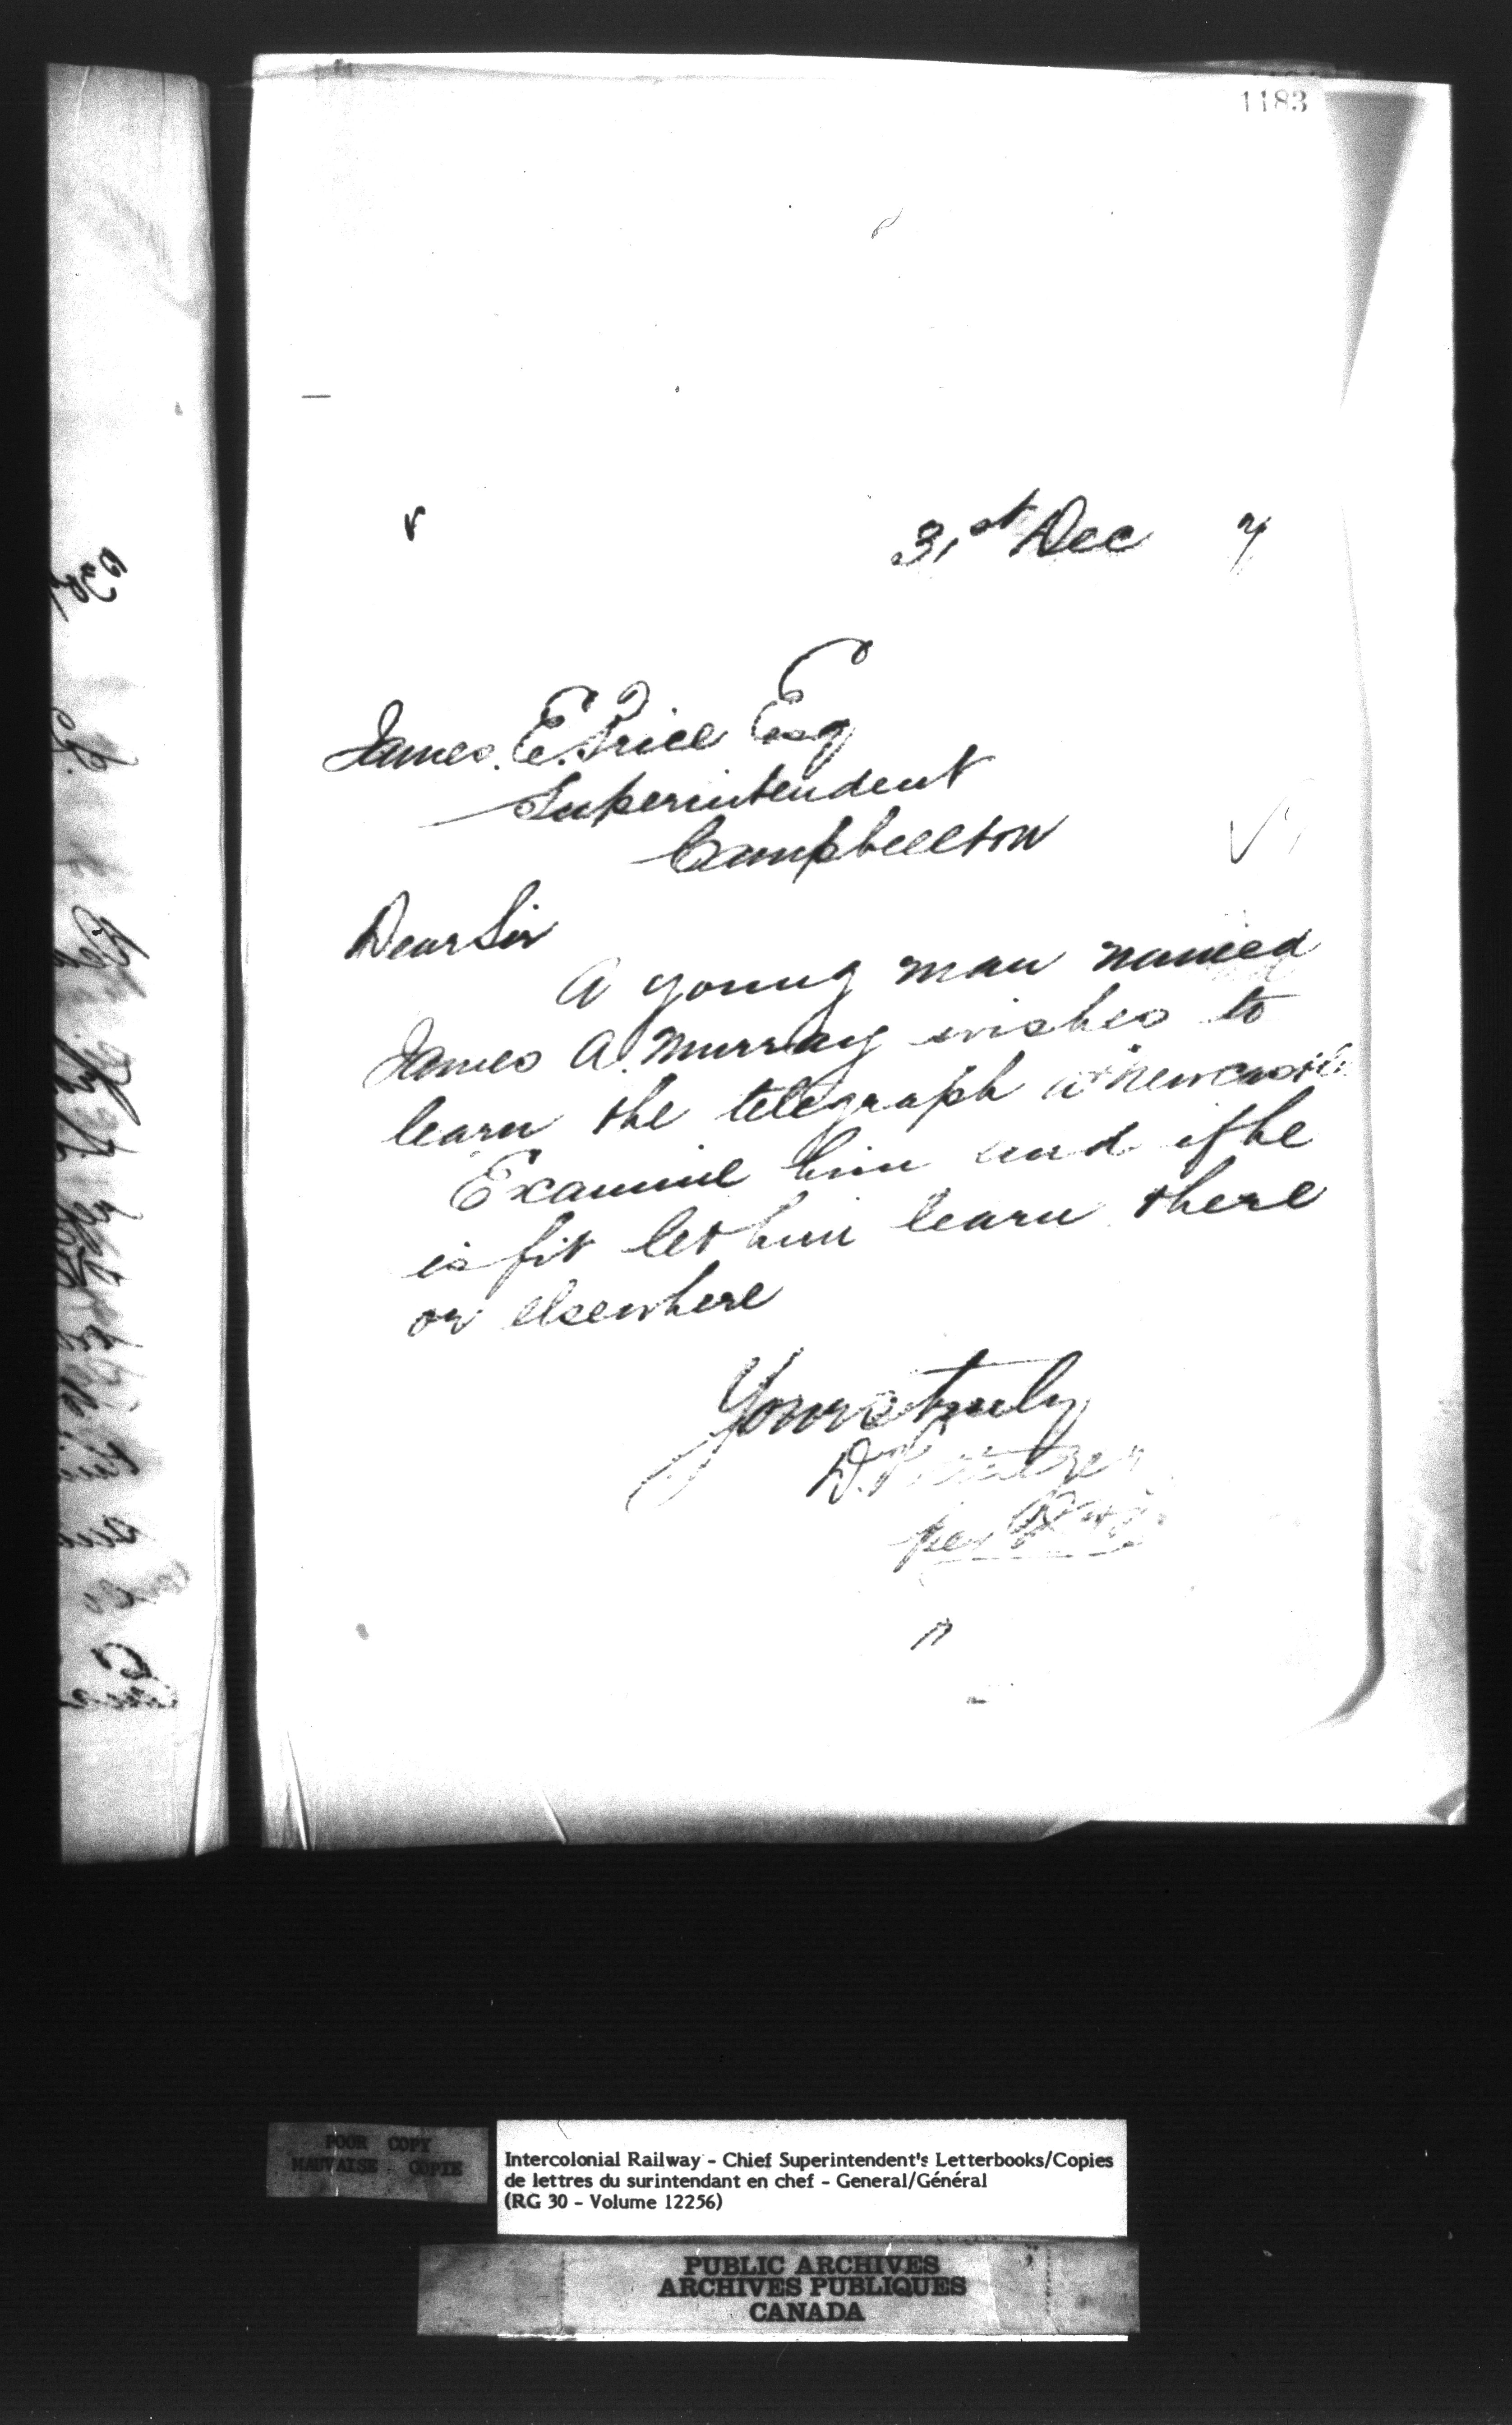 1183
31st Dec 7
James. E. Price Esq
Superintendent
Campbellton
Dear Sir
A young man named
James A. Murray wishes to
learn the telegraph at Newcastle
Examine him and if he
is fit let him learn there
or elsewhere
Yours truly
D. Pottinger
per
POOR COPY
MAUVAISE COPIE
Intercolonial Railway - Chief Superintendent's Letterbooks/Copies
de lettres du surintendant en chef - General/Général
(RG 30 - Volume 12256)
PUBLIC ARCHIVES
ARCHIVES PUBLIQUES
CANADA